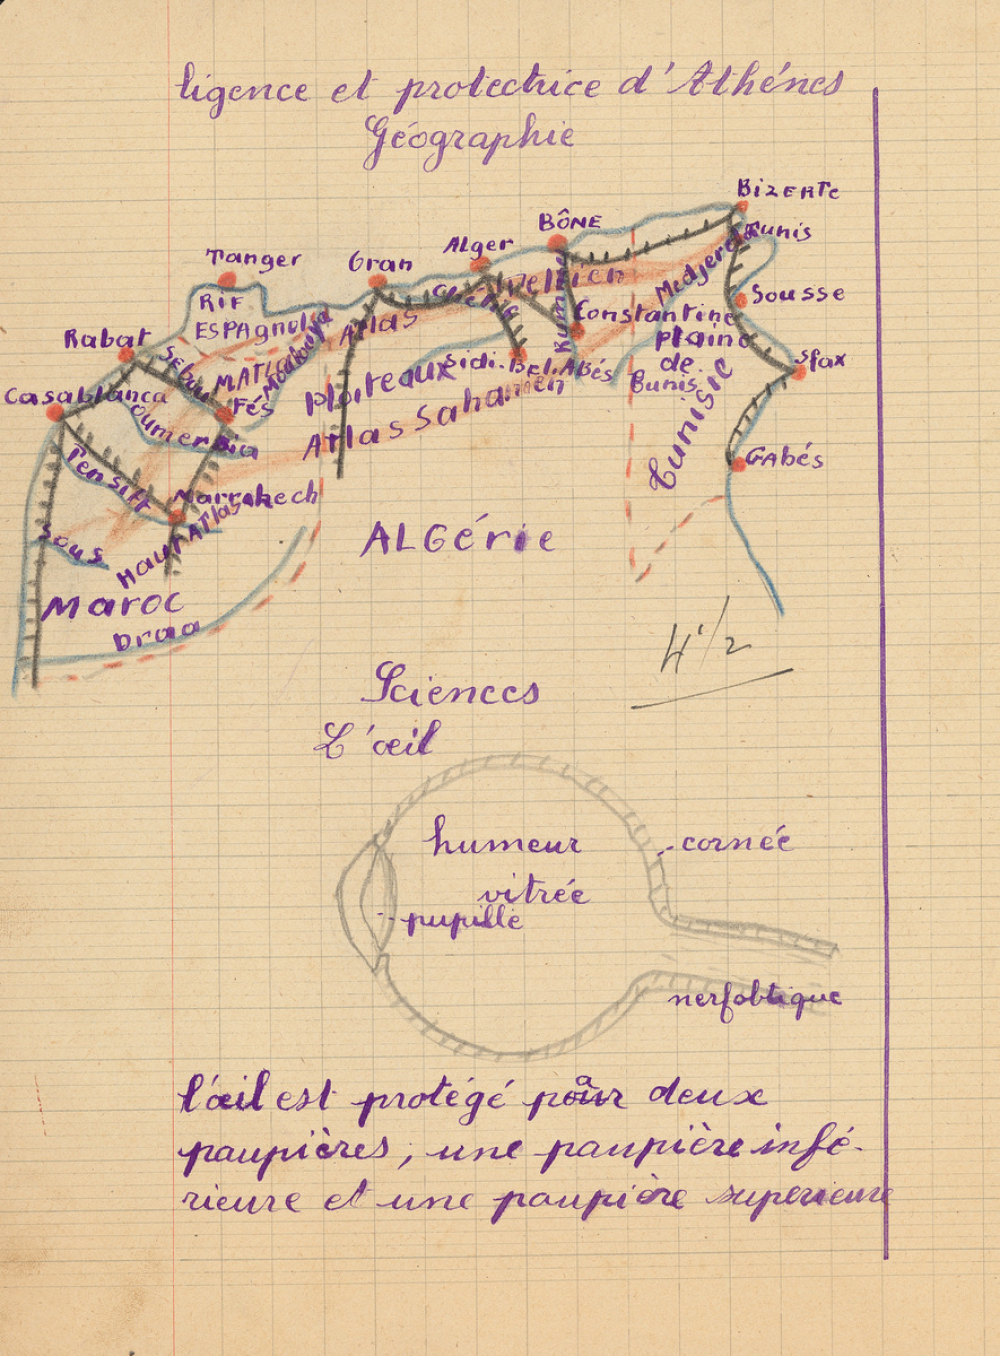 ligence et protectrice d'Athénes
Géographie
Bizerte
BÔNE
Tunis
Tanger
Oran
Alger
Medjerda
RIF
ESPAGNOL
Chélif
Tellien
Sousse
Rabat
Atlas
Rummel
Constantine
plaine
de
Tunis
Sebou
Moulouya
Sfax
Casablanca
Fés
Plateaux
Sidi-Bel.Abés
Atlas Saharien
Tunisie
Oumerbia
Tensift
Marrakech
Gabés
Sous
Haut Atlas
ALGérie
Maroc
Draa
4 1/2
Sciences
L'œil
humeur
vitrée
cornée
pupille
nerfobtique
l'œil est protégé par deux
paupières, une paupière infé-
rieure et une paupière superieure